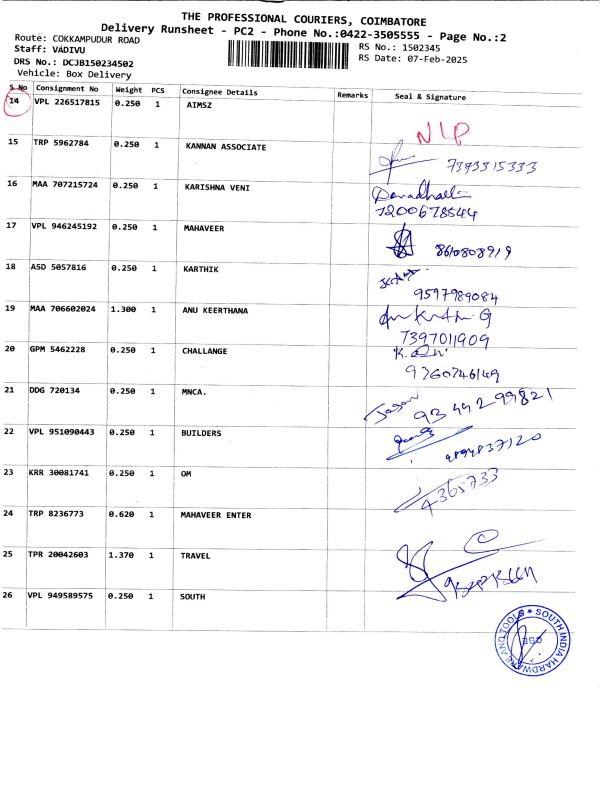 THE PROFESSIONAL COURIERS, COIMBATORE
Delivery Runsheet - PC2 - Phone No.:0422-3505555 - Page No.:2
Route: COKKAMPUDUR ROAD
Staff: VADIVU
RS No.: 1502345
DRS No.: DCJB150234502
RS Date: 07-Feb-2025
Vehicle: Box Delivery
S No Consignment No Weight PCS Consignee Details Remarks Seal & Signature
14 VPL 226517815 0.250 1 AIMSZ
NIP
15 TRP 5962784 0.250 1 KANNAN ASSOCIATE
7393315333
16 MAA 707215724 0.250 1 KARISHNA VENI
7200678544
17 VPL 946245192 0.250 1 MAHAVEER
8610808919
18 ASD 5057816 0.250 1 KARTHIK
9597989084
19 MAA 706602024 1.300 1 ANU KEERTHANA
7397011909
20 GPM 5462228 0.250 1 CHALLANGE
9360746149
21 DDG 720134 0.250 1 MNCA.
Jason 9344299821
22 VPL 951090443 0.250 1 BUILDERS
23 KRR 30081741 0.250 1 OM
4365733
24 TRP 8236773 0.620 1 MAHAVEER ENTER
25 TPR 20042603 1.370 1 TRAVEL
26 VPL 949589575 0.250 1 SOUTH
SOUTH INDIA HARDWARE AND TOOLS
CBE